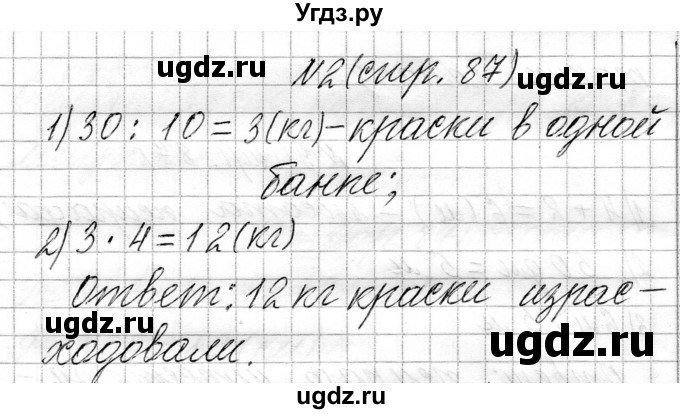 Угдз.ру
ugdz.ru
N2 (стр. 87)
ugdz.ru
1) 30 : 10 = 3 (кг) - краски в одной
банке;
2) 3 · 4 = 12 (кг)
Ответ: 12 кг краски израс-
ugdz.ru
ugdz.ru
ходовали.
ugdz.ru